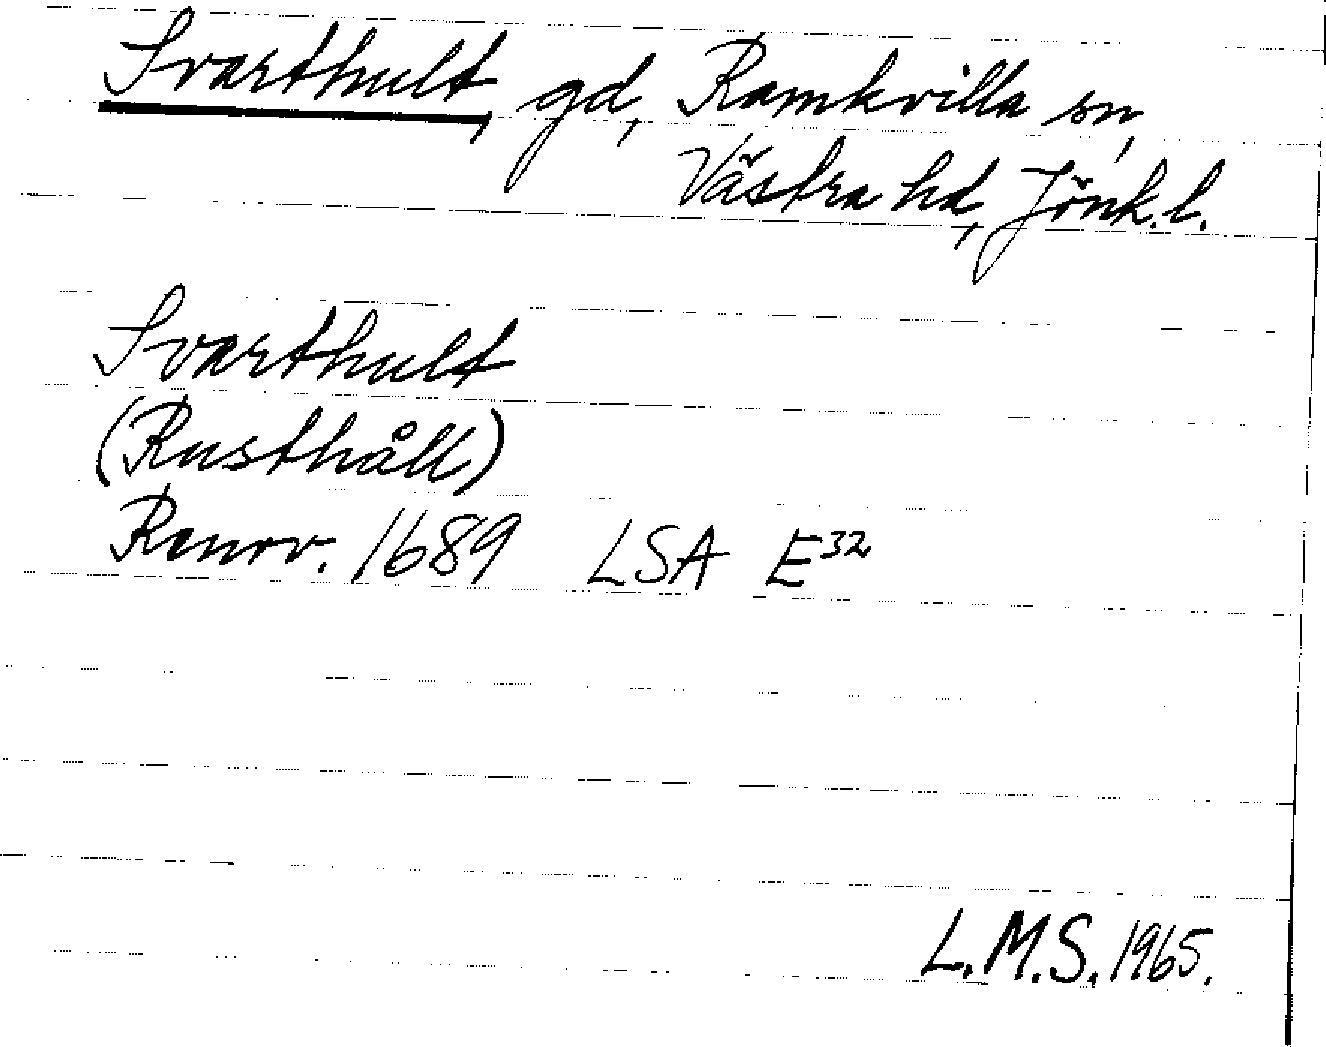 Svarthult, gd, Ramkvilla sn,
Västra hd, Jönk.l.
Svarthult
(Rusthåll)
Renov. 1689 LSA E32
L.M.S. 1965.